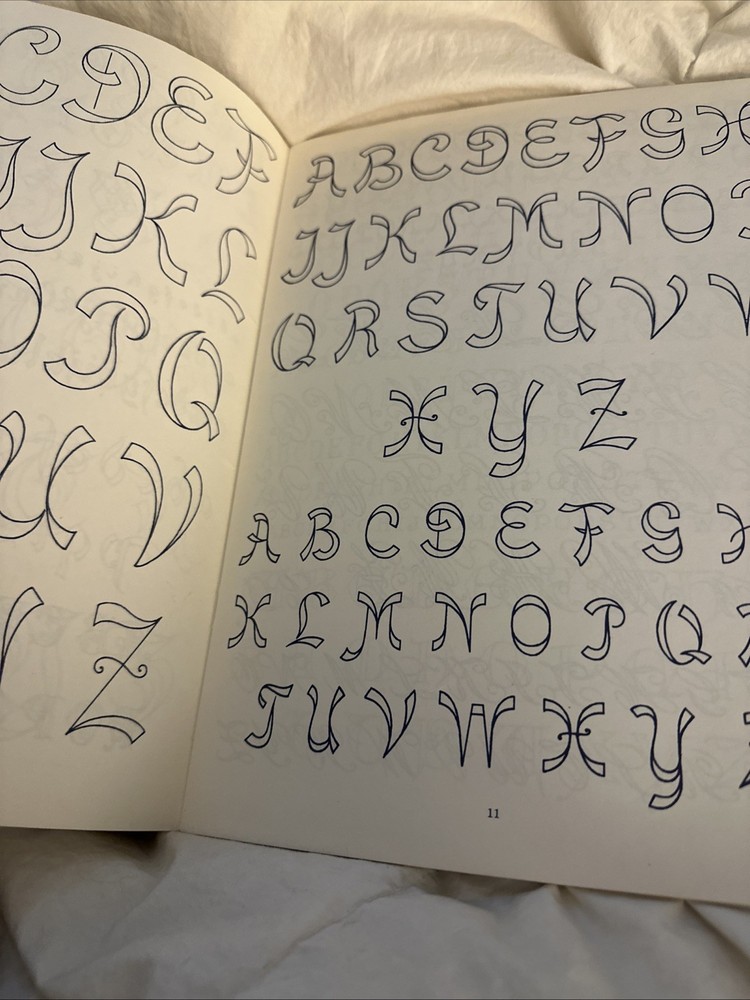 C D E F
I J K L
O P Q
U V
Z
A B C D E F G H
I J K L M N O
Q R S T U V
X Y Z
A B C D E F G
K L M N O P Q
T U V W X Y
11